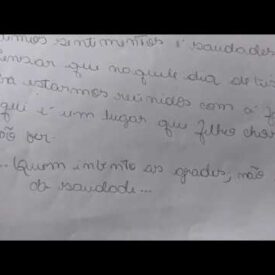 sentimentos é saudades
pensar que naquele dia
estarmos reunidos com a
aqui é um lugar que filho chora
não ver.
...Quem inventou as grades, não
da saudade...